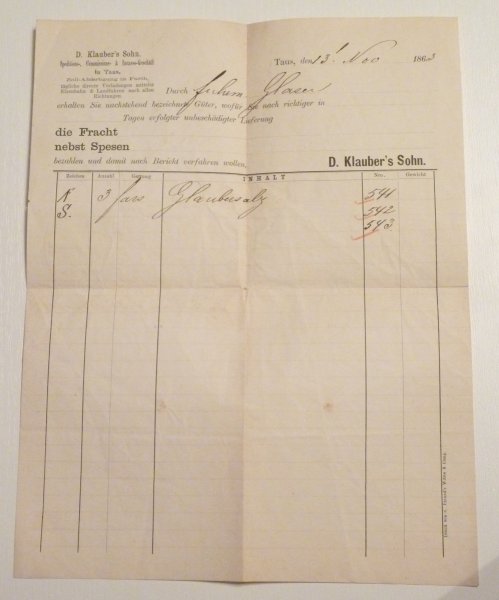 D. Klauber's Sohn.
Speditions-, Commissions- & Incasso-Geschäft
in Taus.
Zoll-Abfertigung in Furth,
tägliche directe Verladungen mittelst
Eisenbahn & Landfuhren nach allen
Richtungen
Taus, den 13 Nov 1863
Durch Fuhrm. Glaser
erhalten Sie nachstehend bezeichnete Güter, wofür Sie nach richtiger in
Tagen erfolgter unbeschädigter Lieferung
die Fracht
nebst Spesen
bezahlen und damit nach Bericht verfahren wollen.
D. Klauber's Sohn.
Zeichen Anzahl Gattung INHALT Nro. Gewicht
K 3 Fass Glaubersalz 541
S. 542
543